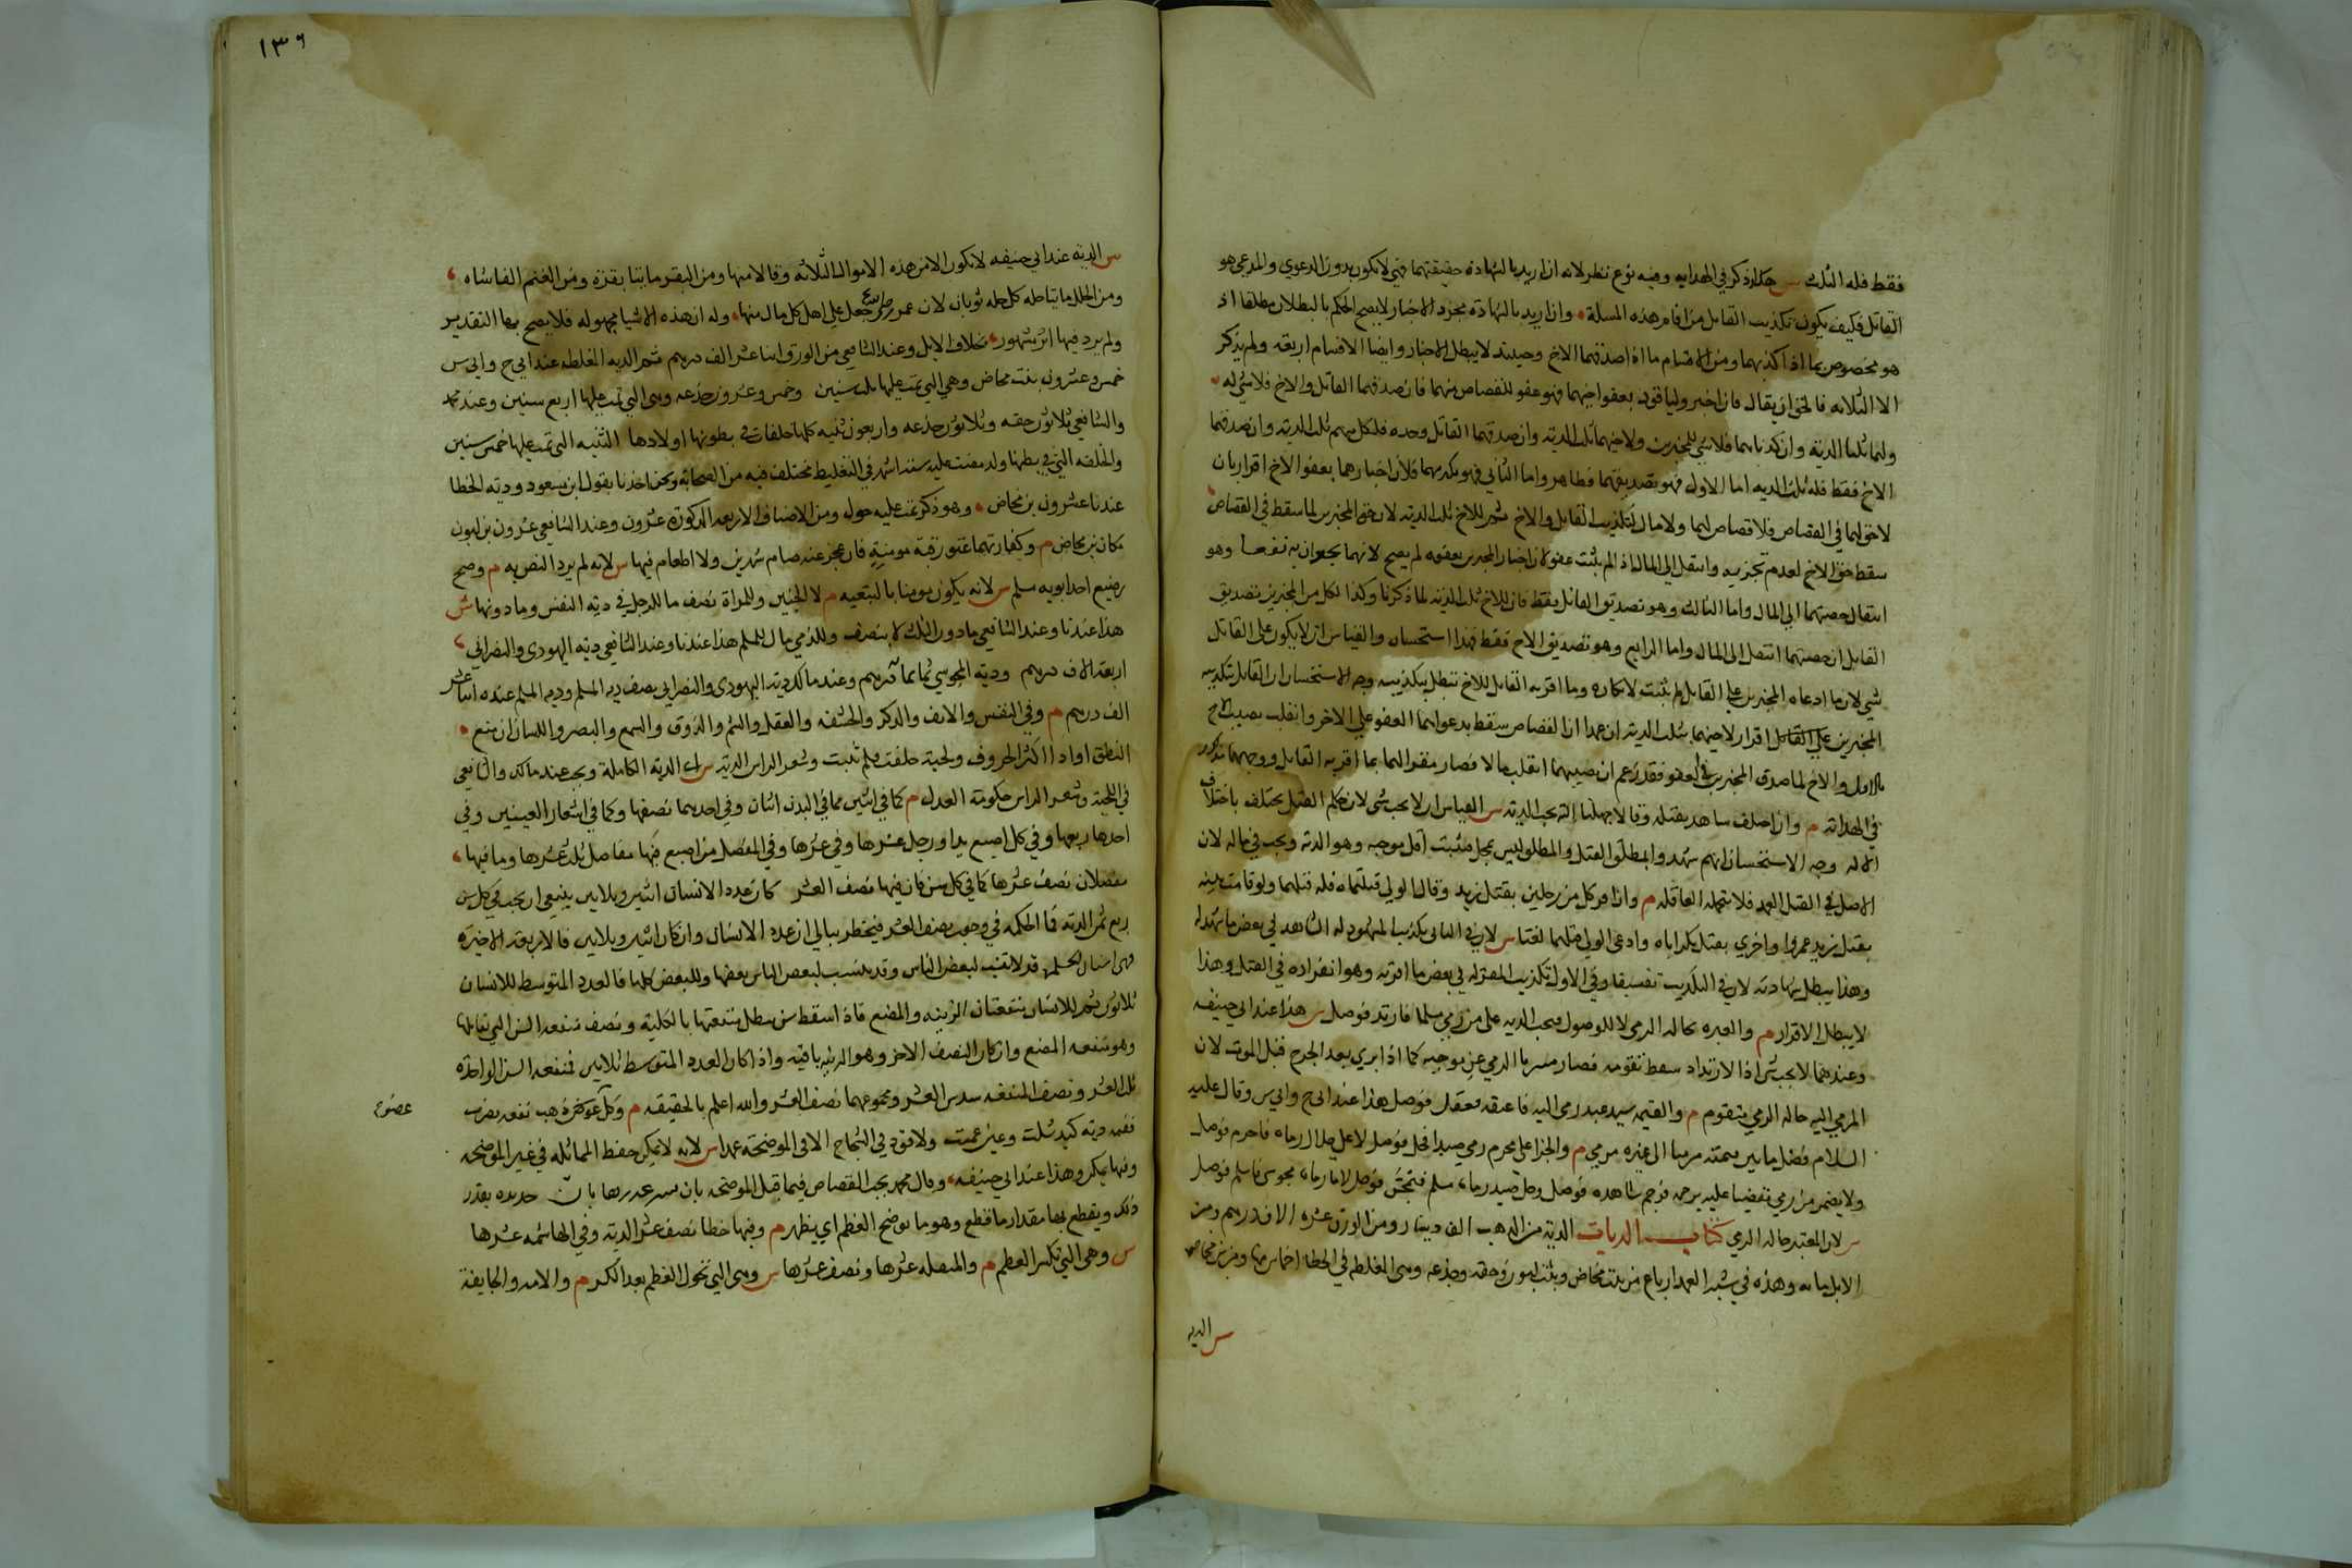 فقط فله الثلث س هكذا ذكر في الهداية وفيه نوع نظر لانه ان اريد بالشهادة حقيقتها فهي لا يكون بدون الدعوى والمدعى هو
القاتل فكيف يكون تكذيب القاتل من اقام هذه المسلة وان اريد بالشهادة مجرد الاخبار لا يصح الحكم بالبطلان مطلقا اذ
هو مخصوص بما اذا كذبهما ومن الاقسام ما اذا صدقهما الاخ وحينئذ لا يبطل الاخبار وايضا الاقسام اربعة ولم يذكر
الا الثلاثه فالحق ان يقال فان اخبر وليا قود بعفو اخيهما فهو عفو للقصاص منهما فان صدقهما القاتل والاخ فلا شي له
ولهما ثلثا الدية وان كذباهما فلا شي للمخبرين ولاخيهما ثلث الدية وان صدقهما القاتل وحده فلكل منهم ثلث الدية وان صدقهما
الاخ فقط فله ثلث الديه اما الاول فهو تصديقهما فظاهر واما الثاني فهو تكذيبهما فلان اخبارهما بعفو الاخ اقرار بان
لا حق لهما في القصاص فلا قصاص لهما ولا مال لتكذيب القاتل والاخ ثم للاخ ثلث الدية لان حق المخبرين لما سقط في القصاص
سقط حق الاخ لعدم تجزيه وانتقل الى المال اذ لم يثبت عفوه لان اخبار المخبرين بعفوه لم يصح لانهما يجران به نفعا وهو
انتقال حصتهما الى المال واما الثالث وهو تصديق القاتل فقط فان للاخ ثلث الدية لما ذكرنا وكذا لكل من المخبرين بتصديق
القاتل ان حصتهما انتقل الى المال واما الرابع وهو تصديق الاخ فقط فهذا استحسان والقياس ان لا يكون على القاتل
شي لان ما ادعاه المخبرين على القاتل لم يثبت لانكاره وما اقر به القاتل للاخ تبطل بتكذيبه وجه الاستحسان ان القاتل بتكذيبه
المخبرين على القاتل اقرار لاخيهما بثلث الدية ان عدا ان القصاص سقط بدعواهما العفو على الاخر وانقلب نصيب الاخ
مالا والاخ لما صدق المخبرين في العفو فقد زعم ان نصيبهما انقلب مالا فصار مقرا لهما بما اقر به القاتل ووجههما مذكور
في الهداية م وان اختلف شاهد بقتله وقالا جهلنا الته يجب الدية س القياس ان لا يجب شي لان حكم القتل يختلف باختلاف
الاله وجه الاستحسان انهم شهدوا بمطلق القتل والمطلق ليس بمجمل فيثبت اقل موجبه وهو الدية ويجب في ماله لان
الاصل في القتل العمد فلا يتحمله العاقلة م وان اقر كل من رجلين بقتل زيد وقال الولي قتلتماه فله قتلهما ولو قامت بينه
بقتل زيد عمروا واخرى بقتل بكر اياه وادعى الولي قتلهما لغتا س لان في الثاني تكذيب المشهود له الشاهد في بعض ما شهد له
وهذا يبطل شهادته لان في التكذيب تفسيقا وفي الاول تكذيب المقر له في بعض ما اقر به وهو انفراده في القتل وهذا
لا يبطل الاقرار م والعبره بحاله الرمي لا للوصول فيجب الديه على من رمى مسلما فارتد فوصل س هذا عند ابي حنيفه
وعندهما لا يجب شي اذا الارتداد سقط تقومه فصار مبريا الرمي عن موجبه كما اذا ابري بعد الجرح قبل الموت لان
المرمي اليه حاله الرمي متقوم م والقيمه سيد عبد رمى اليه فاعتقه فوصل هذا عند ابي ح وابي س وقال عليه
السلام فضل ما بين قيمته مرميا الى غيره مرمي م والجزا على محرم رمى صيدا فحل فوصل لا على حلال رماه فاحرم فوصل
ولا يضمن من رمى مقضيا عليه برجم فرجع شاهده فوصل وحل صيد رماه مسلم فتمجس فوصل لا ما رماه مجوسي فاسلم فوصل
س لان المعتبر حاله الرمي كتاب الديات الدية من الذهب الف دينار ومن الورق عشرة الاف درهم ومن
الابل مايه وهذه في شبه العمد ارباع من بنت مخاض وبنت لبون وحقه وجذعه وهي المغلظه في الخطا اخماس منها ومن بن مخاض
س الديه
١٣٦
س الدية عند ابي حنيفه لا تكون الا من هذه الاموال الثلاثه وقالا منها ومن البقر مايتا بقرة ومن الغنم الفا شاه
ومن الحلل مايتا حله كل حله ثوبان لان عمر رضي جعل على اهل كل مال منها وله ان هذه الاشيا مجهوله فلا يصح بها التقدير
ولم يرد فيها اثر مشهور بخلاف الابل وعند الشافعي من الورق اثنا عشر الف درهم ثم الديه المغلظه عند ابي ح وابي س
خمس وعشرون بنت مخاض وهي التي تمت عليها ثلث سنين وخمس وعشرون جذعه وهي التي تمت عليها اربع سنين وعند محمد
والشافعي ثلاثون حقه وثلاثون جذعه واربعون ثنيه كلها خلفات في بطونها اولادها الثنيه التي تمت عليها خمس سنين
والخلفه التي في بطنها ولد مضت عليه ستة اشهر في التغليظ مختلف فيه من الصحابة ونحن اخذنا بقول ابن مسعود ودية الخطا
عندنا عشرون بن مخاض وهو ذكر تمت عليه حول ومن الاصناف الاربعه المذكورة عشرون وعند الشافعي عشرون بن لبون
مكان بن مخاض م وكفارتهما عتق رقبة مومنة فان عجز عنه صام شهرين ولا اطعام فيها س لانه لم يرد النص به م وصح
رضيع احد ابويه مسلم س لانه يكون مومنا بالتبعيه م لا الجنين وللمراة نصف ما للرجل في دية النفس وما دونها س
هذا عندنا وعند الشافعي ما دون الثلث لا يتنصف وللذمي ما للمسلم هذا عندنا وعند الشافعي دية اليهودي والنصراني
اربعة الاف درهم ودية المجوسي ثمانمائة درهم وعند مالك دية اليهودي والنصراني نصف دية المسلم ودية المسلم عنده اثنا عشر
الف درهم م وفي النفس والانف والذكر والحشفه والعقل والشم والذوق والسمع والبصر واللسان ان منع
النطق او اداا اكثر الحروف ولحية حلقت فلم تنبت وشعر الراس الدية س اي الدية الكاملة ويجب عند مالك والشافعي
في اللحية وشعر الراس حكومة العدل م كما في اثنين مما في البدن اثنان وفي احدهما نصفها وكما في اشفار العينين وفي
احدها ربعها وفي كل اصبع يد او رجل عشرها وفي عشرها وفي المفصل من اصبع فيها مفاصل ثلث عشرها وما فيها
مفصلان نصف عشرها كما في كل سن فان فيها نصف العشر كان عدد الاسنان اثنين وثلاثين ينبغي ان يجب في كل سن
ربع ثمن الدية فما الحكمه في وجوب نصف العشر فيخطر ببالي ان عدد الاسنان وان كان اثنين وثلاثين فالاربعة الاخيرة
هي اسنان الحلم قد لا تنبت لبعض الناس وقد ينبت لبعض الناس بعضها وللبعض كلها فالعدد المتوسط للاسنان
ثلاثون ثم للاسنان منفعتان الزينه والمضغ فاذا سقط سن يبطل منفعتها بالكلية ونصف منفعة السن التي تقابلها
وهو منفعه المضغ وان كان النصف الاخر وهو الزينه باقيه واذا كان العدد المتوسط ثلاثين فمنفعة السن الواحدة
ثلث العشر ونصف المنفعه سدس العشر ومجموعهما نصف العشر والله اعلم بالحقيقه م وكل عضو ذهب نفعه بضرب
ففيه دية كيد شلت وعين عميت ولا قود في الشجاج الا في الموضحة عمدا س لانه لا يمكن حفظ المماثله في غير الموضحه
وفيها يمكن وهذا عند ابي حنيفه وقال محمد يجب القصاص فيما قبل الموضحه بان يسبر غورها بان حديده بقدر
ذلك ويقطع بها مقدار ما قطع وهو ما توضح العظم اي يظهر م وفيها خطا نصف عشر الدية وفي الهاشمه عشرها
س وهي التي تكسر العظم م والمنقله عشرها ونصف عشرها س وهي التي تحول العظم بعد الكسر م والامه والجايفة
عضو ح